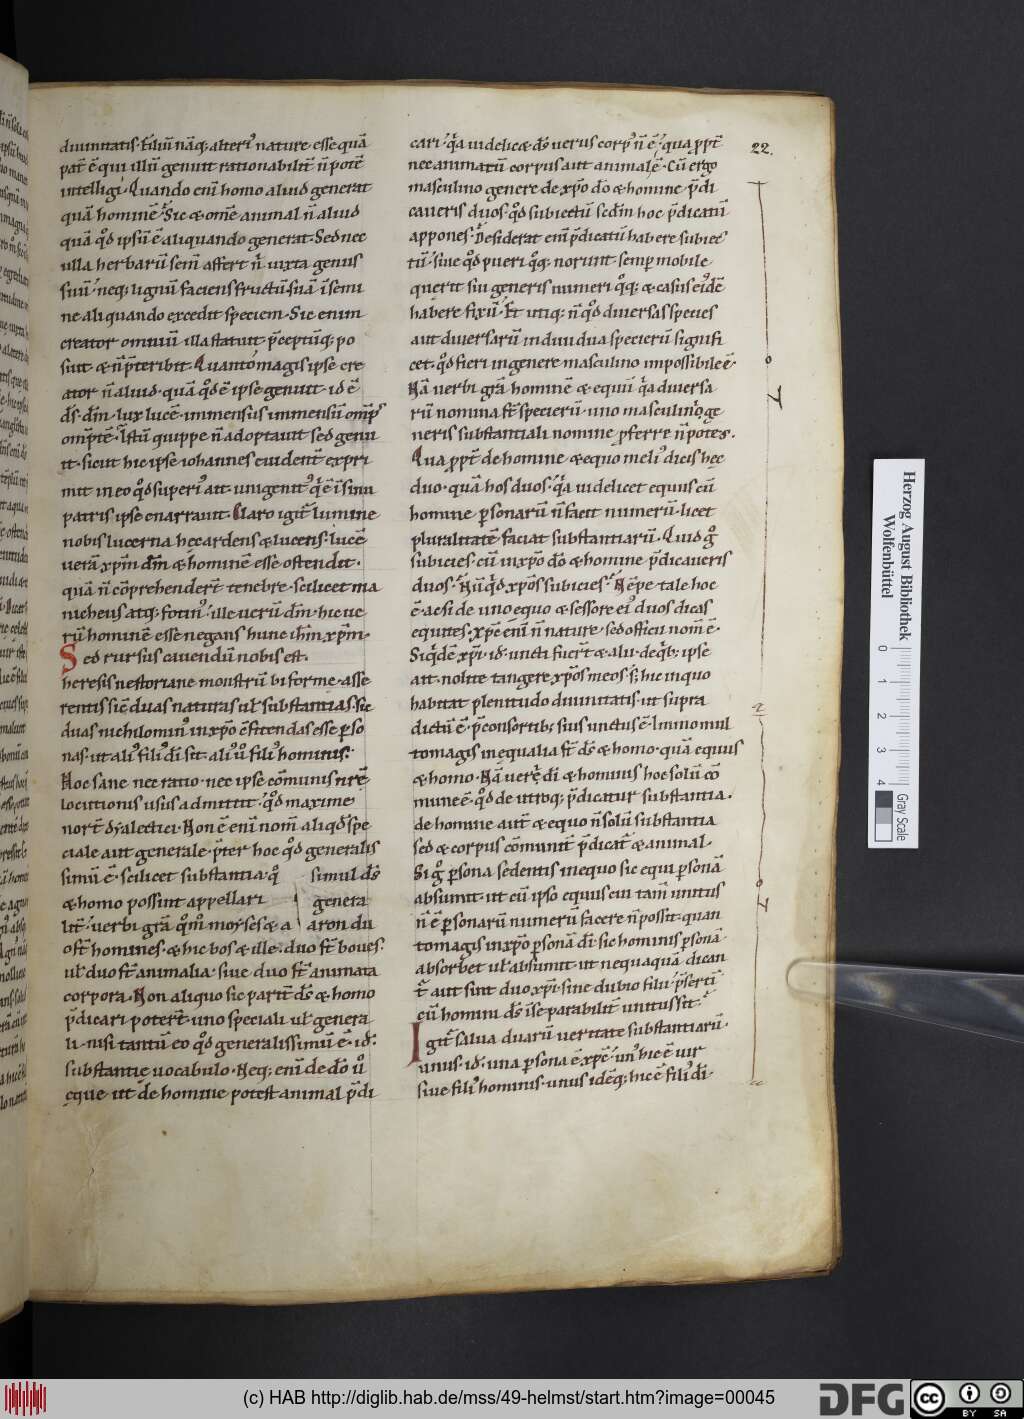 diuinitatis. filiũ nãq; alteri᾽ nature esse quã
pat̃ ẽ qui illũ genuit rationabilit̃ ñ potẽ
intelligi. Quando eni homo aliud generat
quã hominẽ? Sic & omẽ animal ñ aliud
quã qd̃ ipsũ ẽ aliquando generat. Sed nec
ulla herbarũ semẽ affert ñ iuxta genus
suũ. neq; lignũ faciens fructũ suã ĩ semi
ne aliquando excedit speciem. Sic enim
creator omniũ illa statuit p̃ceptũq; po
suit & ñ p̃teribit. Quanto magis ipse cre
ator ñ aliud quã qd̃ ẽ ipse genuit. id ẽ
ds̃ dm̃. lux lucẽ. immensus immensũ omp̃s
omp̃tẽ. Istũ quippe ñ adoptauit sed genu
it. sicut hic ipse iohannes euident̃ expri
mit in eo qd̃ superi᾽ ait. unigenit᾽ q̃ ẽ ĩ sinu
patris ipse enarrauit. Claro igit̃ lumine
nobis lucerna hęc ardens & lucens. lucẽ
uerã xp̃m dm̃ & hominẽ esse ostendit.
quã ñ cõprehendert̃ tenebre. scilicet ma
nicheus atq; fotin᾽. ille uerũ dm̃. hic ue
rũ hominẽ esse negans hunc ihm̃ xp̃m.
Sed rursus cauendũ nobis est.
heresis nestoriane monstrũ biforme. asse
rentis sic̃ duas naturas ul̃ substantias. sic
duas nichilomin᾽ in xp̃o c̃fitendas esse p̃so
nas. ut ali᾽ fili᾽ di᾽ sit. ali᾽ u᾽ fili᾽ hominis.
Hoc sane nec ratio. nec ipse cõmunis nr̃ę
locutionis usus admittit. qd̃ maxime
nort̃ dyalectici. Non ẽ eni nom̃ aliqd̃ spe
ciale aut generale. p̃ter hoc qd̃ generalis
simũ ẽ. scilicet substantia. q̃ simul ds̃
& homo possint appellari genera
lit̃. uerbi grã. qm̃o moyses & a aron du
o st̃ homines. & hic bos & ille. duo st̃ boues.
ul̃ duo st̃ animalia. siue duo st̃ animata
corpora. Non aliquo sic parit̃ ds̃ & homo
p̃dicari poterĩt uno speciali ul̃ genera
li. nisi tantũ eo qd̃ generalissimũ ẽ. id᾽
substantie uocabulo. Neq; eni de do᾽ ũ
ęque ut de homine potest animal p̃di
cari. q̃a uidelicę ds̃ uerus corp᾽ ñ ẽ. qua ppt̃
nec animatũ corpus aut animal ẽ. Cũ ergo
masculino genere de xp̃o do᾽ & homine p̃di
caueris duos. qd̃ subiectũ sedm̃ hoc p̃dicatũ
appones. Desiderat eni p̃dicatũ habere subiec
tũ. siue qd̃ pueri q̃q; norunt. semp mobile
querit sui generis numeri q̃q; & casus eidẽ
habere fixũ. Et utiq; ñ qd̃ diuersas species
aut diuersarũ indiuidua specierũ signifi
cet. qd̃ fieri in genere masculino impossibile ẽ.
Nã uerbi grã hominẽ & equũ q̃a diuersa
rũ nomina st̃ specierũ. uno masculini ge
neris substantiali nomine pferre ñ potes.
Qua ppt̃ de homine & equo meli᾽ dicis hęc
duo. quã hos duos. q̃a uidelicet equus cũ
homine p̃sonarũ ñ facit numerũ. licet
pluralitatẽ faciat substantiarũ. Quid g᾽
subicies. cũ in xp̃o do᾽ & homine p̃dicaueris
duos? Nũ qd̃ xp̃os subicies? Nẽpe tale hoc
ẽ. ac si de uno equo & sessore ei᾽ duos dicas
equites. xp̃c eni ñ naturę. sed officii nom̃ ẽ.
Siqd̃ẽ xp̃i. id᾽ uncti fuert̃ & alii. de qb; ipse
ait. nolite tangere xp̃os meos. s; hic in quo
habitat plenitudo diuinitatis. ut supra
dictũ ẽ. p̃consortib; suis unctus ẽ. l minomul
tomagis inequalia st̃ ds̃ & homo. quã equus
& homo. Nã uerẽ di᾽ & hominis hoc solũ cõ
mune ẽ. qd̃ de utroq; p̃dicatur substantia.
de homine aut̃ & equo ñ solũ substantia
sed & corpus cõmunit̃ p̃dicat̃ & animal.
Si g᾽ p̃sona sedentis in equo sic equi p̃sonã
absumit. ut cũ ipso equus cui tam̃ unitus
ñ ẽ p̃sonarũ numerũ facere ñ possit. quan
tomagis in xp̃o p̃sonã di᾽. sic hominis p̃sonã
absorbet ul̃ absumit. ut nequaquã dican
t̃ aut sint duo xp̃i. sine dubio filii. p̃sertĩ
cũ homini ds̃ ĩseparabilit̃ unitus sit?
Igit̃ salua duarũ ueritate substantiarũ.
unus. id᾽ una p̃sona ẽ xp̃c. un᾽ hic ẽ uir
siue fili᾽ hominis. unus idẽq; hic ẽ fili᾽ di᾽.
22.
Herzog August Bibliothek
Wolfenbüttel
0 1 2 3 4
Gray Scale
(c) HAB http://diglib.hab.de/mss/49-helmst/start.htm?image=00045
DFG
cc BY SA